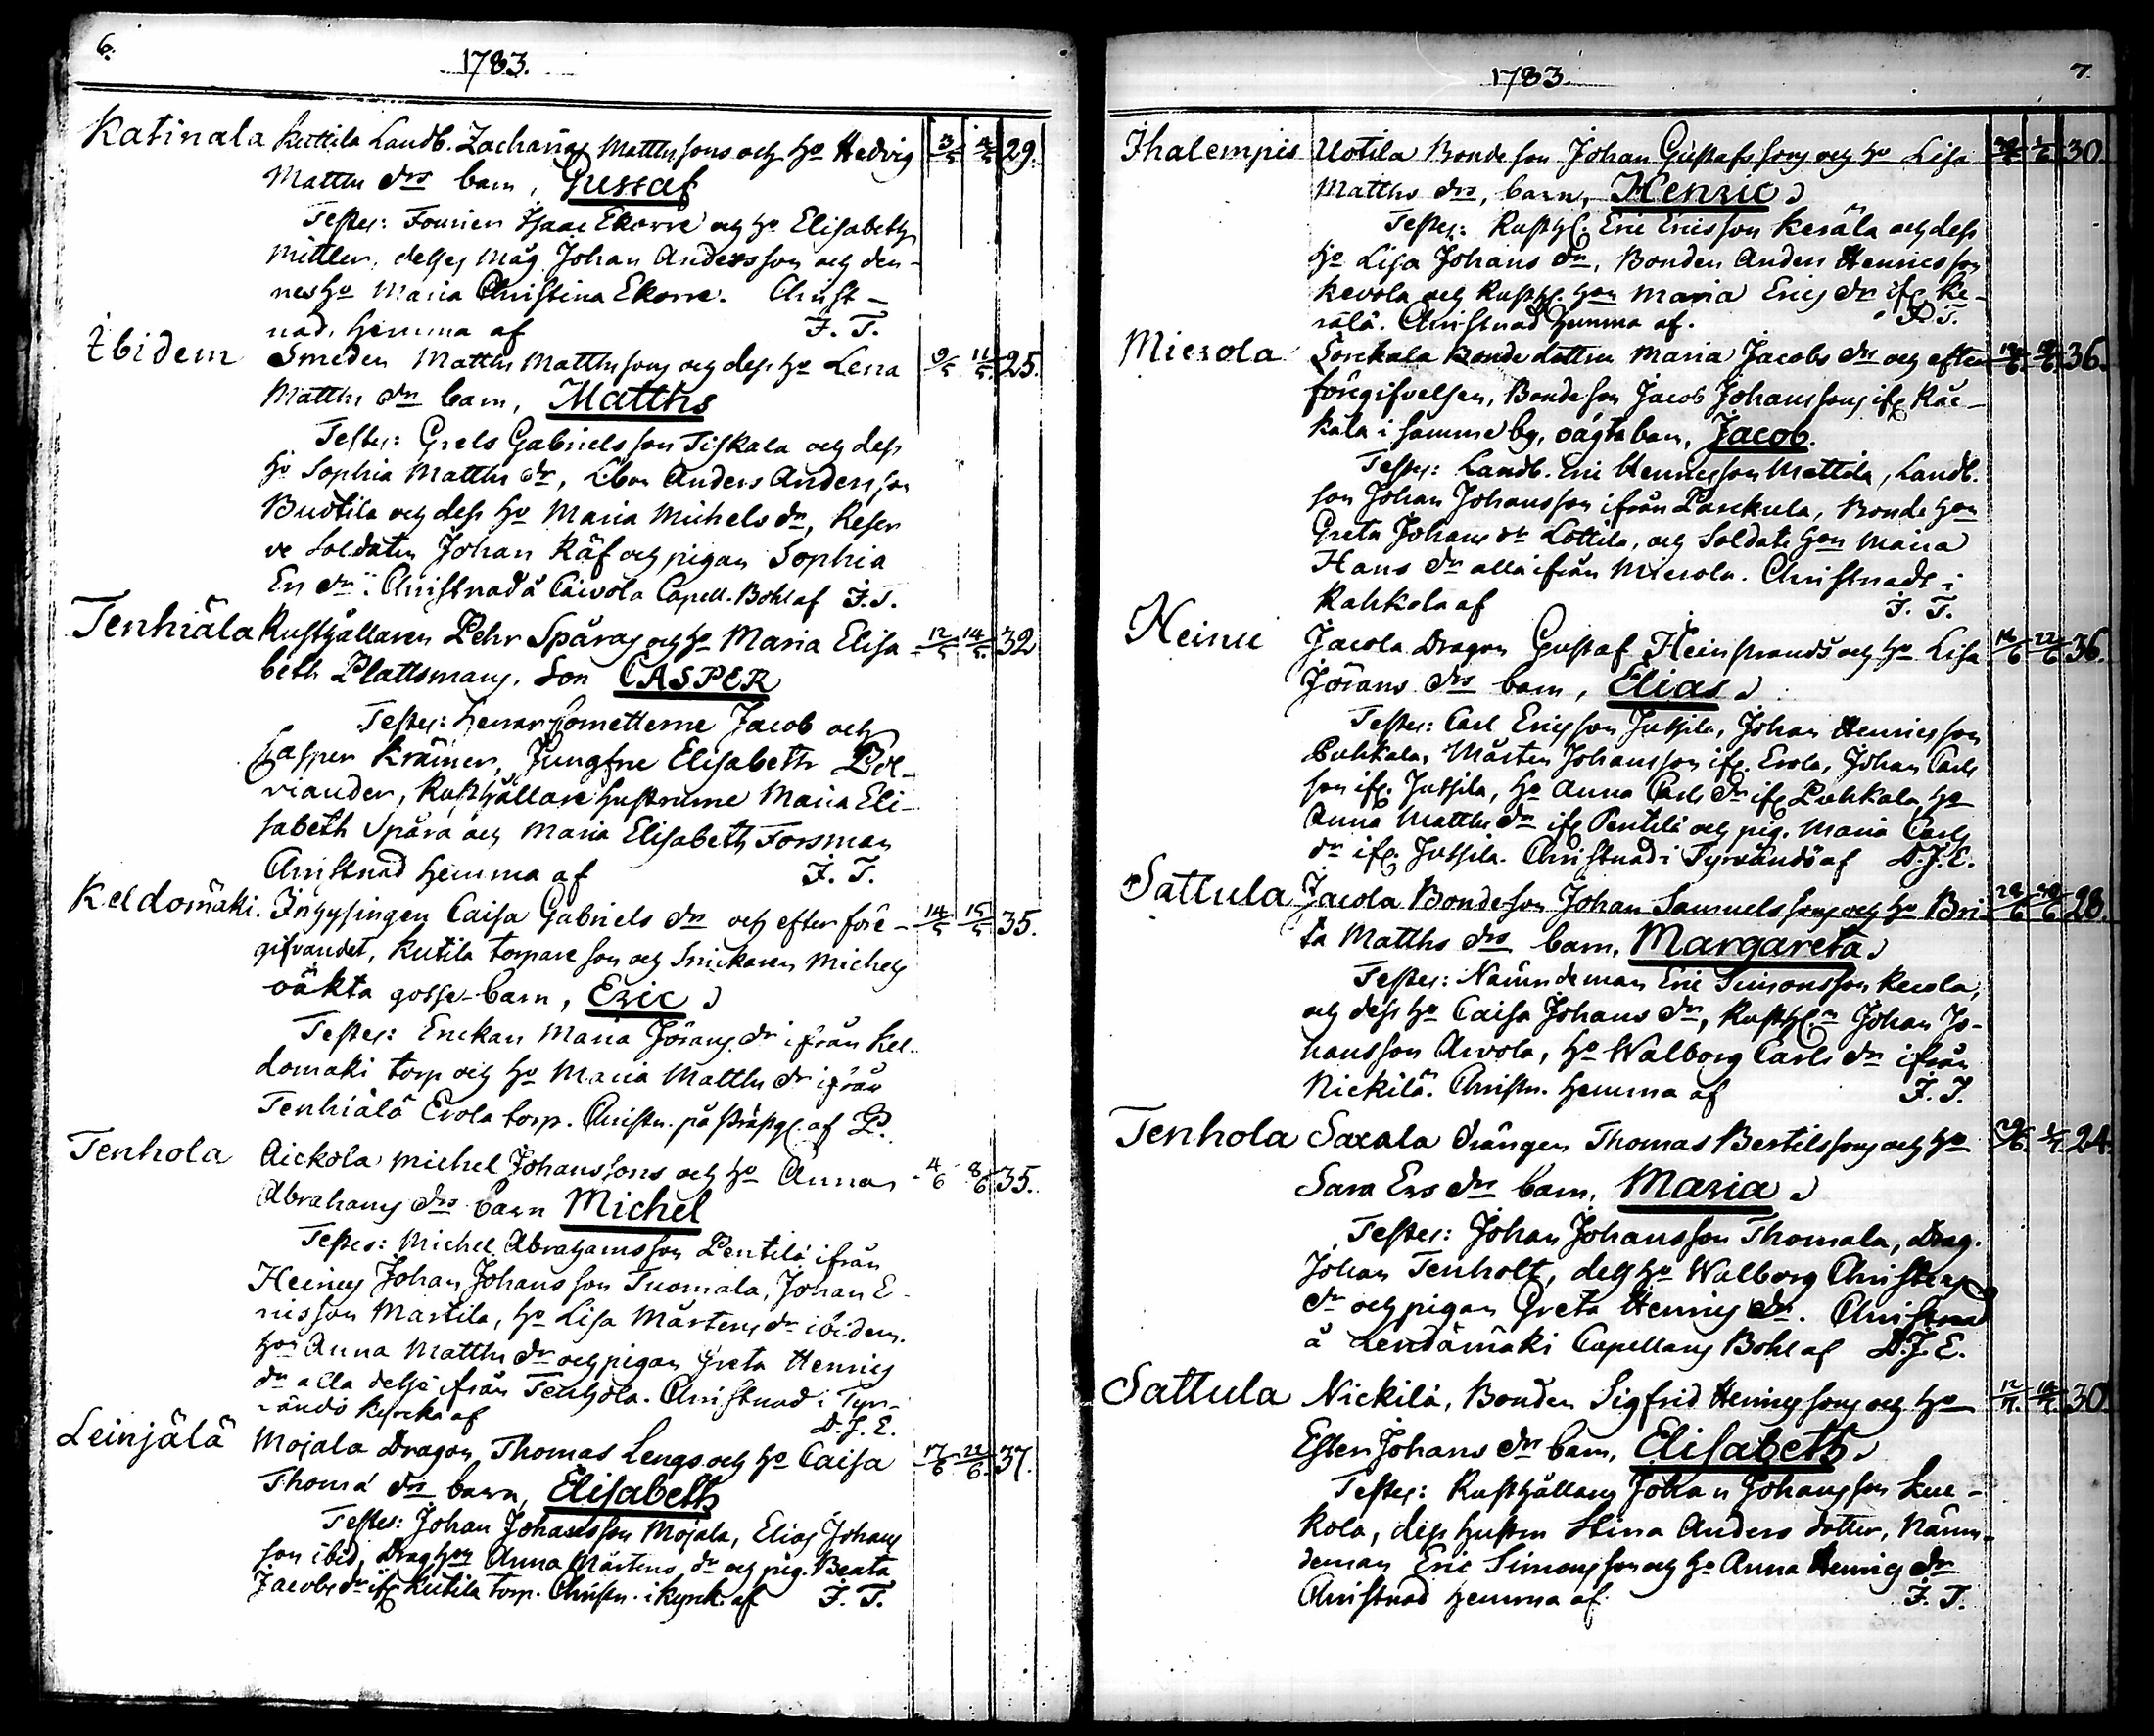 6.
1783.
Katinala Kuttila Landb. Zacharias Matthssons och Ho Hedvig 3/5 4/5 29.
Matths drs barn, Gustaf
Testes: Fourier Isaac Ekorre och Ho Elisabeth
Mittler, desses Måg Johan Andersson och den-
nes Ho Maria Christina Ekorre. Christ-
nad, hemma af J. T.
Ibidem Smeden Matths Matthssons och dess Ho Lena 9/5 11/5 25.
Matths drs barn, Matths
Testes: Grels Gabrielsson Tiskala och dess
Ho Sophia Matths dr, Anders Andersson
Buotila och dess Ho Maria Michels dr, Reser
ve Soldaten Johan Räf och pigan Sophia
Ers dr. Christnad å Caivola Capell. Bohl af J. T.
Tenhiälä Rusthållaren Pehr Spåras och Ho Maria Elisa 12/5 14/5 32
beth Plattsmans, Son CASPER
Testes: Herrar Cornetterne Jacob och
Casper Krämer, Jungfru Elisabeth Pol-
viander, Rusthållare hustrurne Maria Eli-
sabeth Spåra och Maria Elisabeth Forsman
Christnad hemma af J. T.
Keldomäki. Inhysingen Caisa Gabriels drs och efter före- 14/5 15/5 35.
gifvandet, Kutila torpare son och Snickaren Michels
oäkta gosse-barn, Eric
Testes: Enckan Maria Jörans dr ifrån Kel-
domäki torp och Ho Maria Matths dr ifrån
Tenhiälä Erola torp. Christn. på Präpg. af P.
Tenhola Aickola Michel Johanssons och Ho Anna 4/6 8/6 35.
Abrahams drs barn Michel
Testes: Michel Abrahamsson Pentilä ifrån
Heinus Johan Johansson Tuomala, Johan E-
ricsson Martila, Ho Lisa Mårtens dr ibidem.
Hon Anna Matths dr och pigan Greta Henrics
dr alla desse ifrån Tenhola. Christnad i Tyr-
vändö kyrcka af D. J. E.
Leinjälä Mojala Dragon Thomas Lengs och Ho Caisa 17/6 22/6 37.
Thoma drs barn, Elisabeth
Testes: Johan Johansson Mojala, Elias Johans
son ibid, Drag. Hon Anna Mårtens dr och pig. Beata
Jacobs dr ifr Kutila torp. Christn. i kyrck. af J. T.
7.
1783.
Ihalempis Uotila Bonde son Johan Gustafssons och Ho Lisa 30.
Matths drs, barn, Henric
Testes: Rusth. Eric Ericsson Keräla och dess
Ho Lisa Johans dr, Bonden Anders Henricsson
Kevola och Rusth. hon Maria Erics dr ifr. Ke-
rälä. Christnad hemma af. J. T.
Mierola Sorckala Bonde dottren Maria Jacobs drs och efter 36.
föregifvelsen, Bonde son Jacob Johanssons ifr Räc-
kala i samma by, oägta barn, Jacob.
Testes: Landb. Eric Henricsson Mattila, Landb.
son Johan Johansson ifrån Parckula, Bonde hon
Greta Johans dr Lottila, och Soldats hon Maria
Hans dr alla ifrån Mierola. Christnadt i
Rahkola af J. T.
Heinu Jacola Dragon Gustaf Heinstrands och Ho Lisa 16/6 22/6 36.
Jörans drs barn, Elias
Testes: Carl Ericsson Jussila, Johan Henricsson
Puhkala, Mårten Johansson ifr. Erola, Johan Carls
son ifr. Jussila, Ho Anna Carls dr ifr Puhkala, Ho
Anna Matths dr ifr Pentilä och pig. Maria Carls
dr ifr. Jussila. Christnad i Tyrvändö af D. J. E.
Sattula Jacola Bonde son Johan Samuelssons och Ho Bri- 28.
ta Matths drs barn, Margareta
Testes: Nämndeman Eric Simonsson Kecola,
och dess Ho Caisa Johans dr, Rusth. Johan Jo-
hansson Arvola, Ho Walborg Carls dr ifrån
Nickilä. Christn. hemma af J. T.
Tenhola Saxala drängen Thomas Bertilssons och Ho 24.
Sara Ers drs barn, Maria
Testes: Johan Johansson Thomala, Drag.
Johan Tenholt, dess Ho Walborg Christers
dr och pigan Greta Henrics dr. Christnad
å Lendämäki Capellans Bohl af D. J. E.
Sattula Nickilä, Bonden Sigfrid Henricssons och Ho 30.
Ester Johans drs barn, Elisabeth
Testes: Rusthållaren Johan Johansson Lue-
kola, dess hustru Stina Anders dotter, Nämn-
deman Eric Simonsson och Ho Anna Henrics dr
Christnad hemma af J. T.